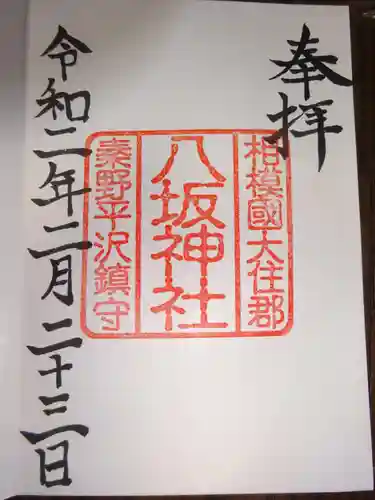 奉拝
相模國大住郡
八坂神社
秦野平沢鎮守
令和二年二月二十三日